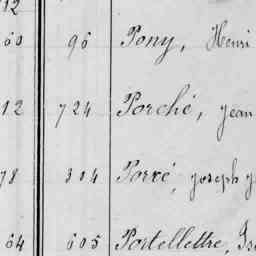 12
60 96 Pony, Henri
12 724 Porché, Jean
78 304 Porré, Joseph
64 605 Portellettre,